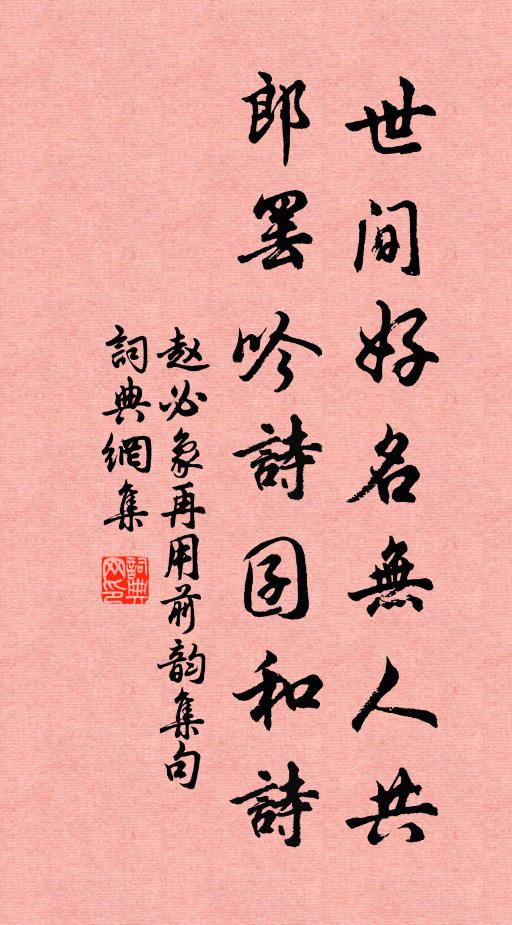 世间好名無人共
郎罢吟詩囝和詩
赵必象再用前韵集句
詞典網集
詞典网印